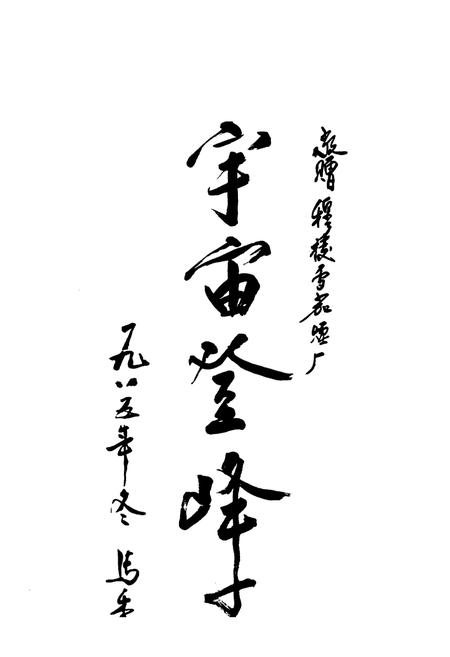 敬赠 穆棱雪茄烟厂
宇宙登峰
一九八五年冬